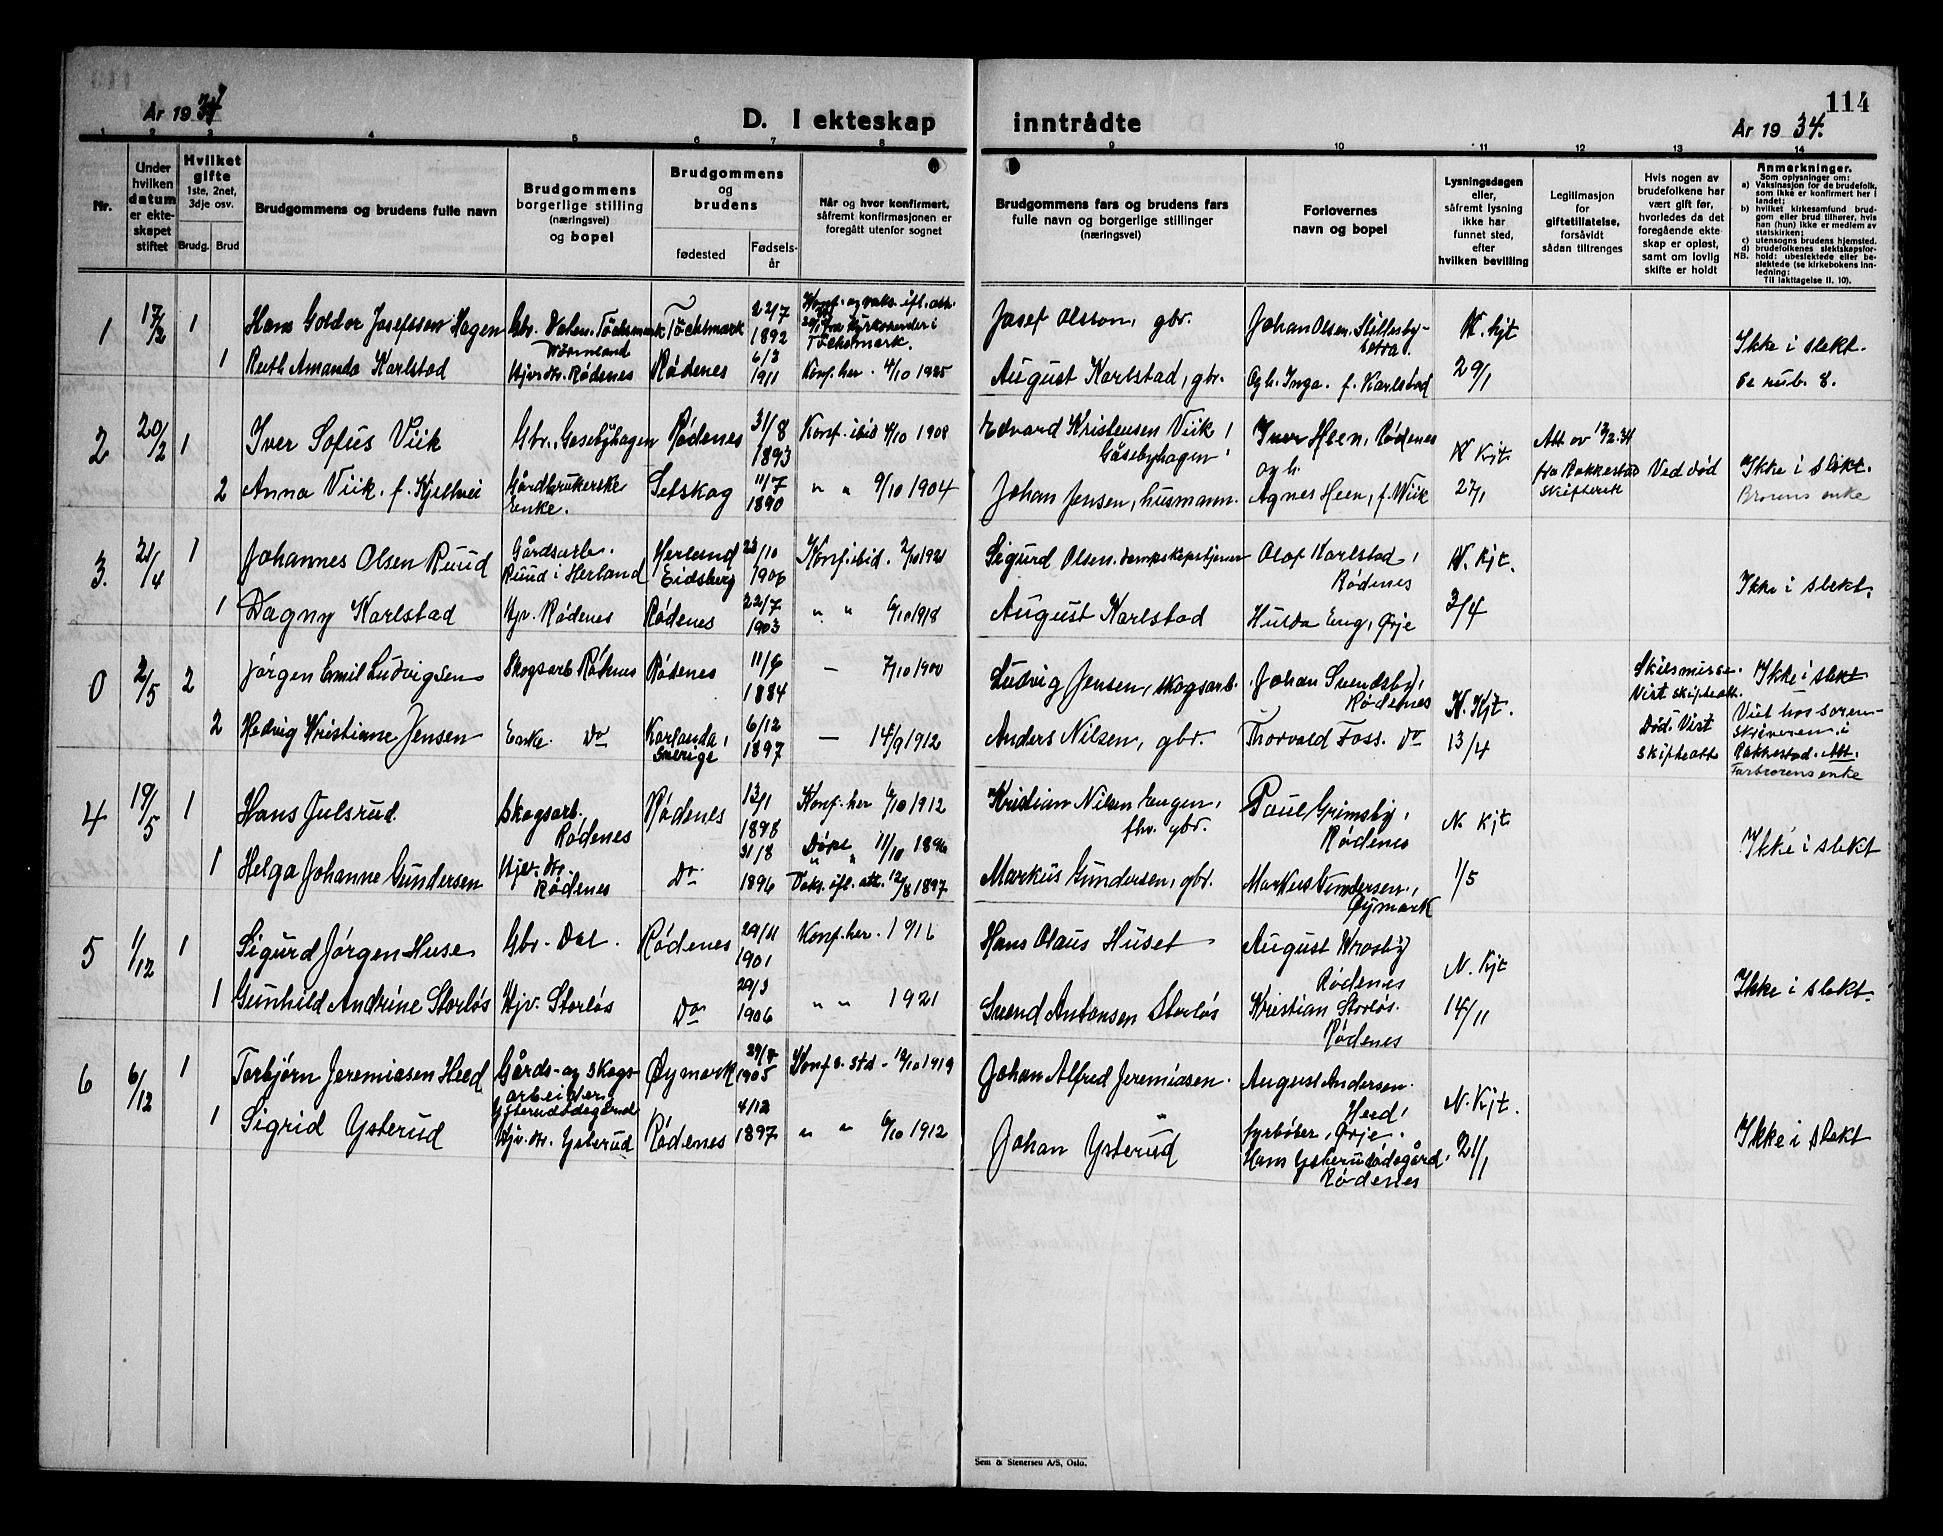 114
År 1934
D. I ekteskap inntrådte
År 1934.
1 2 3 4 5 6 7 8 9 10 11 12 13 14
Nr.
Under hvilken datum er ekteskapet stiftet
Hvilket gifte
1ste, 2net, 3dje osv.
Brudg. Brud
Brudgommens og brudens fulle navn
Brudgommens borgerlige stilling (næringsvei) og bopel
Brudgommens og brudens
fødested
Fødselsår
Når og hvor konfirmert, såfremt konfirmasjonen er foregått utenfor sognet
Brudgommens fars og brudens fars fulle navn og borgerlige stillinger (næringsvei)
Forlovernes navn og bopel
Lysningsdagen eller, såfremt lysning ikke har funnet sted, efter hvilken bevilling
Legitimasjon for giftetillatelse, forsåvidt sådan tiltrenges
Hvis nogen av brudefolkene har vært gift før, hvorledes da det foregående ekteskap er opløst, samt om lovlig skifte er holdt
Anmerkninger.
Som oplysninger om:
a) Vaksinasjon for de brudefolk, som ikke er konfirmert her i landet;
b) hvilket kirkesamfund brudgom eller brud tilhører, hvis han (hun) ikke er medlem av statskirken;
c) utensogns brudens hjemsted.
d) brudefolkenes slektskapsforhold: ubeslektede eller beslektede (se kirkebokens innledning:
NB.
Til iakttagelse II. 10).
1 17/2 1 Hans Goldor Josefsson Hagen Gbr. Dalen, Töcksmark Wärmland Töcksmark 22/7 1892 Konf. og vaks. ifl. att. fra kyrkoherden i Töcksmark. Josef Olsson, gbr. Johan Olsen N. Kjt Ikke i slekt.
1 Ruth Amanda Karlstad Hjv. dtr. Rødenes Rødenes 6/3 1911 Konf. her. 4/10 1925 August Karlstad, gbr. og h. Inga f. Karlstad 29/1 Se rub. 8.
2 20/2 1 Iver Sofus Viik Gbr. Gasebyhagen Rødenes 31/8 1893 Konf. ibid 4/10 1908 Edvard Kristensen Viik, Gåsebyhagen Iver Heen, Rødenes og h. N Kjt. Att av 13/2.34 fra Rakkestad skifterett Ved død Ikke i slekt.
2 Anna Viik f. Kjellvei Gårdbrukerske enke. Setskog 11/7 1890 " " 9/10 1904 Johan Jensen, husmann. Agnes Heen, f. Wiik 27/1 Brorens enke
3. 21/4 1 Johannes Olsen Ruud Gårdsarb. Ruud i Herland Herland Eidsberg 23/10 1906 Konf. ibid. 2/10 1921 Sigurd Olsen. Olof Karlstad, Rødenes N. Kjt. Ikke i slekt.
1 Dagny Karlstad Hjv. Rødenes Rødenes 22/7 1903 " " 6/10 1918 August Karlstad Hulda Eng, Ørje 3/4
0 2/5 2 Jørgen Emil Ludvigsen Skogsarb. Rødenes Rødenes 11/6 1884 — 7/10 1900 Ludvig Jensen, skogsarb. Johan Svendsby, Rødenes N. Kjt. Skilsmisse. Vist skifteatt. Ikke i slekt
2 Hedvig Kristiane Jensen Enke Do Karlanda, Sverige 6/12 1897 — 14/9 1912 Anders Nilsen, gbr. Thorvald Foss. Do 13/4 Død. Vist skifteatt Viet hos sorenskriveren i Rakkestad. Att. Farbrorens enke
4 19/5 1 Hans Julsrud Skogsarb. Rødenes Rødenes 13/1 1898 Konf. her 6/10 1912 Kristian Nilsen Engen, fhv. gbr. Paul Grimsby, Rødenes N. Kjt. Ikke i slekt
1 Helga Johanne Gundersen Hjv. dtr. Rødenes Do 31/8 1896 11/10 Vaks. ifl. att. 12/8 1897 Markus Gundersen, gbr. Markus Gundersen, Øymark 1/5
5 1/12 1 Sigurd Jørgen Huse Gbr. Dal. Rødenes 29/11 1901 Konf. her. 1916 Hans Olaus Huset August Krosby Rødenes N. Kjt Ikke i slekt.
1 Gunhild Andrine Storløs Hjv. Storløs Do 29/3 1906 " " 1921 Svend Antonsen Storløs Kristian Storløs. Rødenes 14/11
6 6/12 1 Torbjørn Jeremiasen Heed Gårds- og skogsarbeider, Ysterudødegård Øymark 1905 Konf. a. std. 12/10 1919 Johan Alfred Jeremiasen. August Andersen Heed, fyrbøter, Ørje. N. Kjt. Ikke i slekt
1 Sigrid Ysterud Hjv. dtr. Ysterud Rødenes 4/12 1897 " " 6/10 1912 Johan Ysterud Hans Ysterudødegård, Rødenes 21/1
Sem & Stenersen A/S, Oslo.